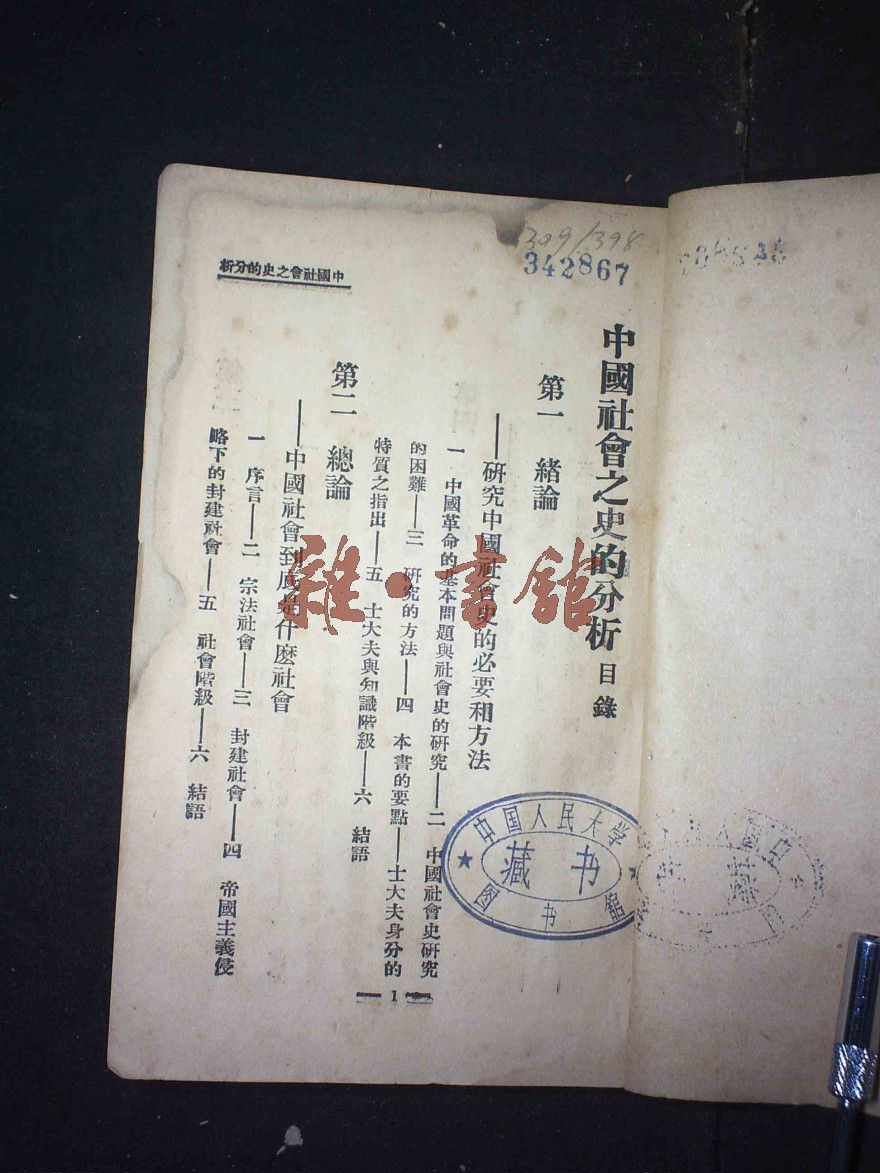 中國社會之史的分析
309/398
342867
中國社會之史的分析 目錄
第一 緒論
——研究中國社會史的必要和方法
一 中國革命的基本問題與社會史的研究——二 中國社會史研究
的困難——三 研究的方法——四 本書的要點——士大夫身分的
特質之指出——五 士大夫與知識階級——六 結語
第二 總論
——中國社會到底是什麼社會
一 序言——二 宗法社會——三 封建社會——四 帝國主義侵
略下的封建社會——五 社會階級——六 結語
1
中国人民大学
藏书
图书馆
雜·書館